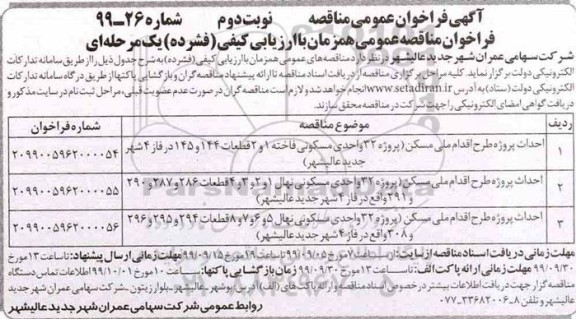 آگهی فراخوان عمومی مناقصه نوبت دوم شماره ۲۶-۹۹
فراخوان مناقصه عمومی همزمان با ارزیابی کیفی (فشرده) یک مرحله‌ای
شرکت سهامی عمران شهر جدید عالیشهر در نظر دارد مناقصه‌های عمومی همزمان با ارزیابی کیفی (فشرده) به شرح جدول ذیل را از طریق سامانه تدارکات
الکترونیکی دولت برگزار نماید. کلیه مراحل برگزاری مناقصه از دریافت اسناد مناقصه تا ارائه پیشنهاد مناقصه گران و بازگشایی پاکتها از طریق درگاه سامانه تدارکات
الکترونیکی دولت (ستاد) به آدرس www.setadiran.ir انجام خواهد شد و لازم است مناقصه گران در صورت عدم عضویت قبلی، مراحل ثبت نام در سایت مذکور و
دریافت گواهی امضای الکترونیکی را جهت شرکت در مناقصه محقق سازند.
ردیف موضوع مناقصه شماره فراخوان
۱ احداث پروژه طرح اقدام ملی مسکن (پروژه ۳۲ واحدی مسکونی فاخته ۱ و ۲ قطعات ۱۴۴ و ۱۴۵ در فاز ۴ شهر جدید عالیشهر) ۲۰۹۹۰۰۵۹۶۲۰۰۰۰۵۴
۲ احداث پروژه طرح اقدام ملی مسکن (پروژه ۳۲ واحدی مسکونی نهال ۱ و ۲ و ۳ و ۴ قطعات ۲۸۶ و ۲۸۷ و ۲۹۰ و ۲۹۱ واقع در فاز ۴ شهر جدید عالیشهر) ۲۰۹۹۰۰۵۹۶۲۰۰۰۰۵۵
۳ احداث پروژه طرح اقدام ملی مسکن (پروژه ۳۲ واحدی مسکونی نهال ۵ و ۶ و ۷ و ۸ قطعات ۲۹۴ و ۲۹۵ و ۲۹۶ و ۳۰۸ واقع در فاز ۴ شهر جدید عالیشهر) ۲۰۹۹۰۰۵۹۶۲۰۰۰۰۵۶
مهلت زمانی دریافت اسناد مناقصه از سایت: از ساعت ۷ صبح روز ۹۹/۰۹/۰۵ تا ساعت ۱۹ مورخ ۹۹/۰۹/۱۵ مهلت زمانی ارائه پیشنهاد: تا ساعت ۱۳ مورخ
۹۹/۰۹/۳۰ مهلت زمانی ارائه پاکت الف: تا ساعت ۱۳ مورخ ۹۹/۰۹/۳۰ زمان بازگشایی پاکتها: ساعت ۱۰ مورخ ۹۹/۱۰/۰۱ اطلاعات تماس دستگاه
مناقصه گزار جهت دریافت اطلاعات بیشتر در خصوص اسناد مناقصه و ارائه پاکت های (الف) آدرس: بوشهر-عالیشهر-بلوار زیتون-شرکت عمران شهر جدید
عالیشهر و تلفن ۸-۳۳۶۸۲۰۰۶-۰۷۷ روابط عمومی شرکت سهامی عمران شهر جدید عالیشهر